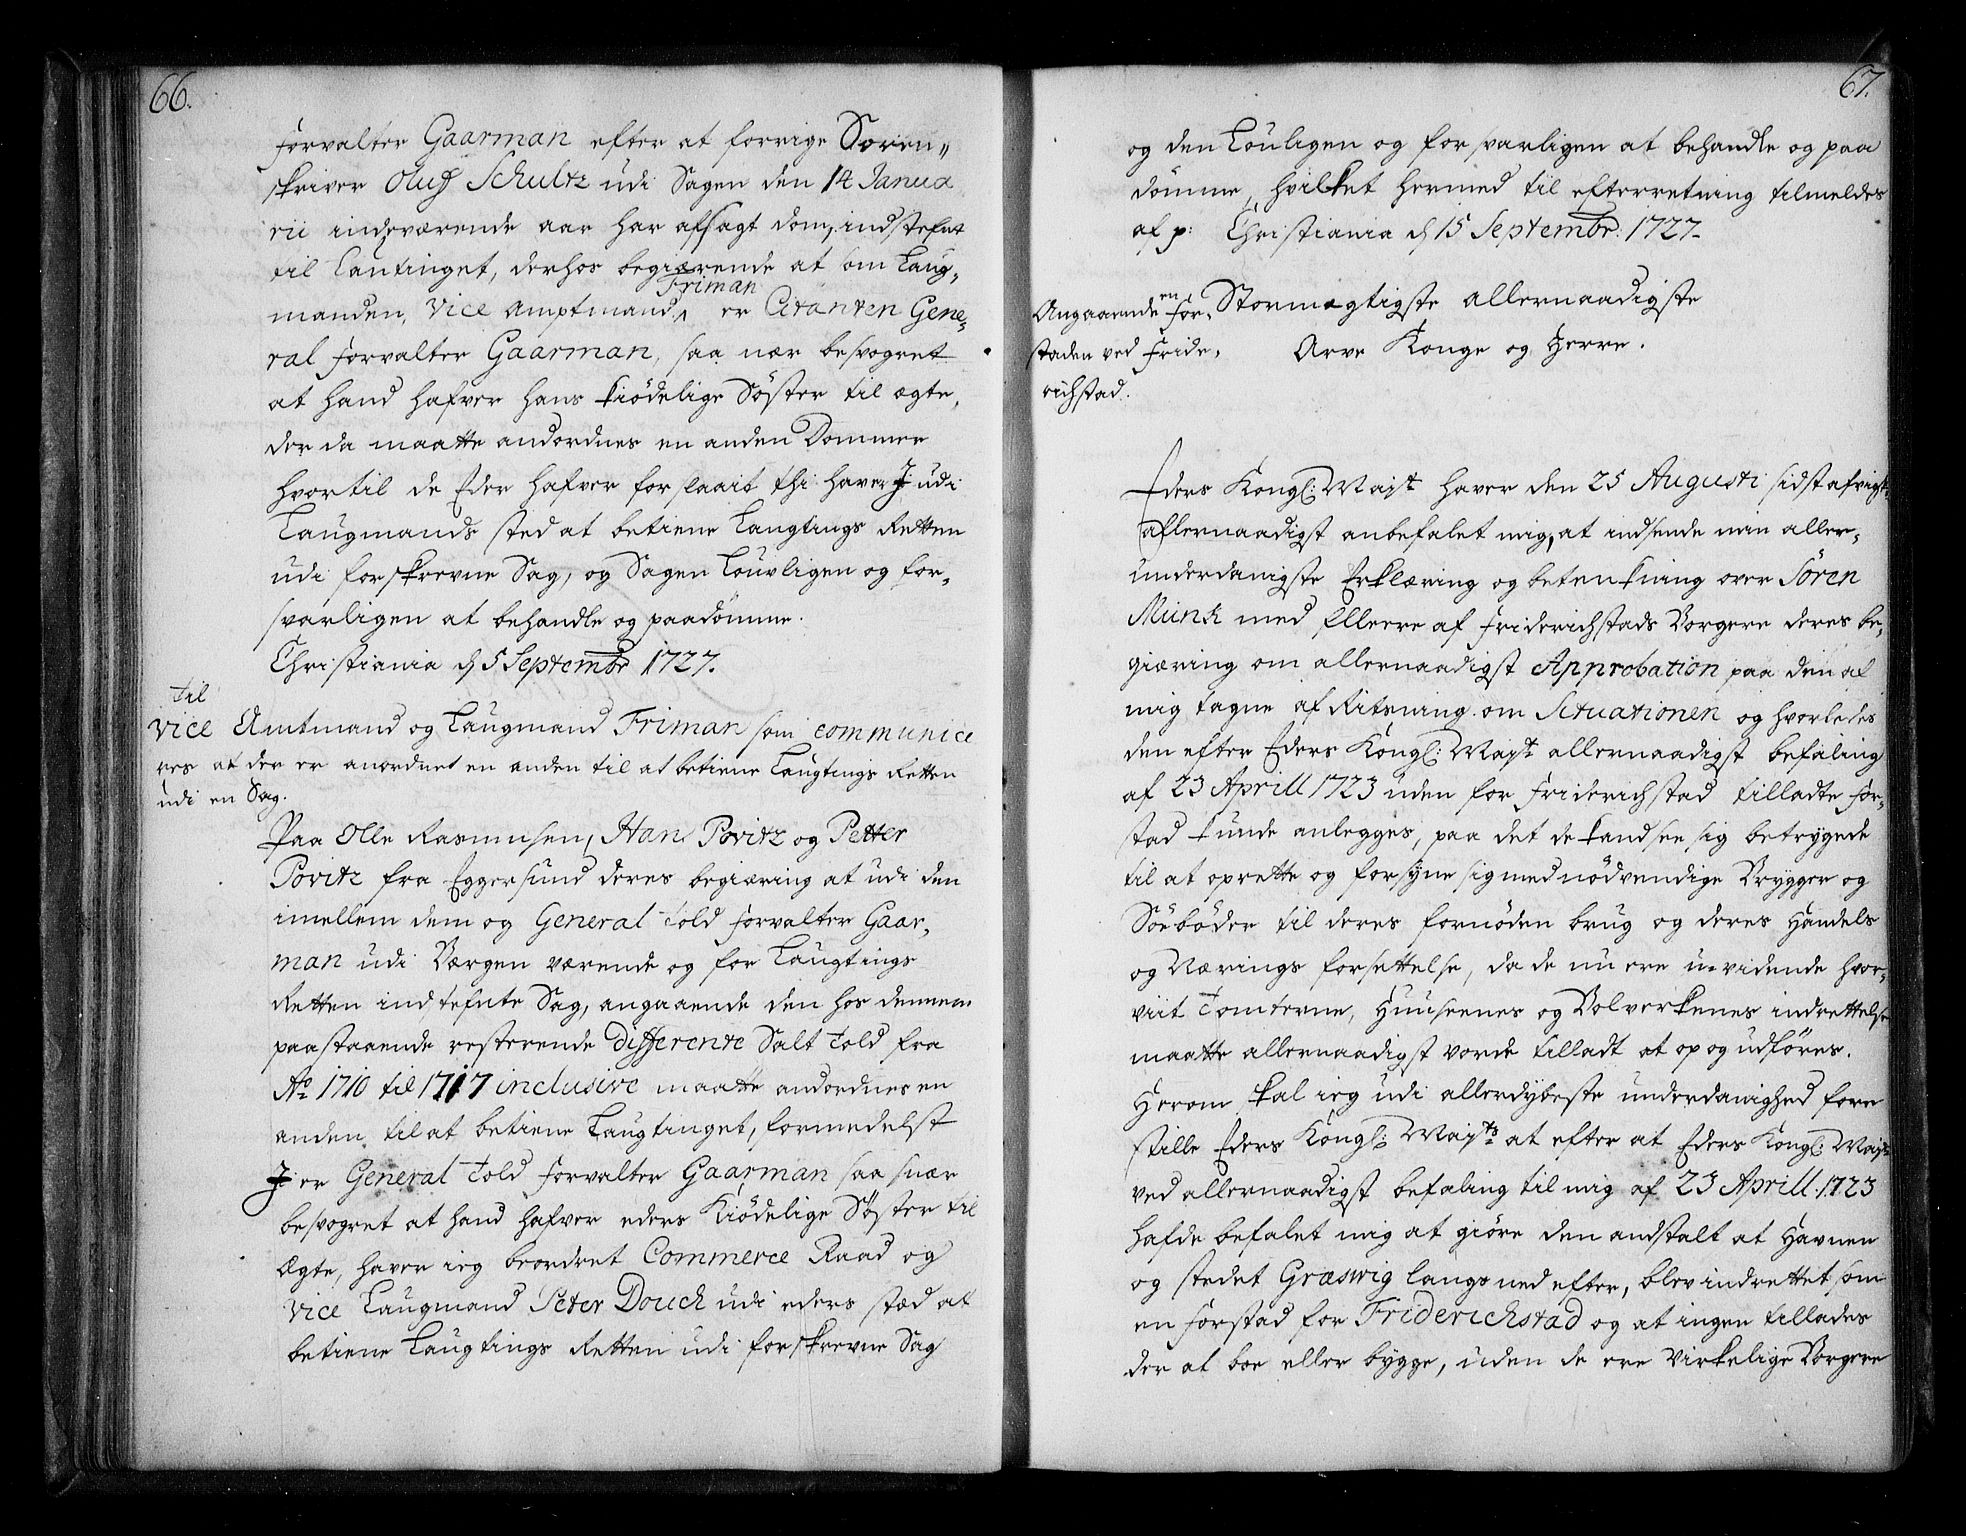 66.
forvalter Gaarman efter at forrige Soren„
skriver Oluf Schultz udi Sagen den 14 Janua
rii indeværende aar har afsagt dom, indstefnt
til Lautinget, derhos begiærende at som Laug„
manden, Vice amptmand Friman er Citanten Gene„
ral forvalter Gaarman, saa nær besvogret
at hand hafver hans kiödelige Söster til ægte,
der da maatte andordnes en anden Dommer
hvortil de Eder hafver forslaait thi haver I udi
Laugmands sted at betiene Laugtings Retten
udi forskrevne Sag, og Sagen Louvligen og for„
svarligen at behandle og paadömme.
Christiania d 5 Septembr 1727.
Til
Vice Amtmand og Laugmand Friman som communice
res at der er anordnet en anden til at betiene Laugtings Retten
udi en Sag.
Paa Olle Rasmusen, Hans Povitz og Petter
Povitz fra Eggersund deres begiæring at udi den
imellem dem og General Told forvalter Gaar„
man udi Bergen værende og for Laugtings
Retten indstefnte Sag, angaaende den hos dennem
paastaaende resterende differente Salt Told fra
Ao 1710 til 1717 inclusive maatte andordnes en
anden til at betiene Laugtinget, formedelst
I er General Told forvalter Gaarman saa nær
besvogret at hand hafver eders Kiödelige Söster til
Ægte, haver ieg beordret Commerce Raad og
Vice Laugmand Peter Douch udi eders stæd at
betiene Laugtings Retten udi forskrevne Sag
67.
og den Louligen og forsvarligen at behandle og paa
dömme, hvilket hermed til efterretning tilmeldes
af p: Christiania d 15 Septembr: 1727.
Angaaende en for„
staden ved Fride„
richstad.
Stormægtigste allernaadigste
Arve Konge og Herre.
Eders Kongl: Mayt haver den 25 Augusti sidst afvigt
allernaadigst anbefalet mig, at indsende min aller„
underdanigste Erklæring og betenkning over Sören
Munk med fleere af Friderichstads Borgere deres be„
giæring om allernaadigst Approbation paa den af
mig tagne af Ritning om Situationen og hvorledes
den efter Eders Kongl: Mayt allernaadigst befaling
af 23 Aprill 1723 uden for Friderichstad tilladte for„
stad kunde anlegges, paa det de kand see sig betrygede
til at oprette og forsyne sig med nödvendige Brygger og
Söeböder til deres fornöden brug og deres Handels
og Nærings forsettelse, da de nu ere u-vidende hvor„
viit Tomterne, Huuseenes og Bolverkenes indrettelse
maatte allernaadigst vorde tilladt at op og udföres.
Herom skal ieg udi allerdybeste underdanighed fore
stille Eders Kongl: Mayts at efter at Eders Kongl: Mayt
ved allernaadigst befaling til mig af 23 Aprill: 1723
hafde befalet mig at giöre den andstalt at Havnen
og stedet Græswig langs ned efter, blev indrettet som
en forstad for Friderichstad og at ingen tillades
der at boe eller bygge, uden de ere Virkelige Borgere